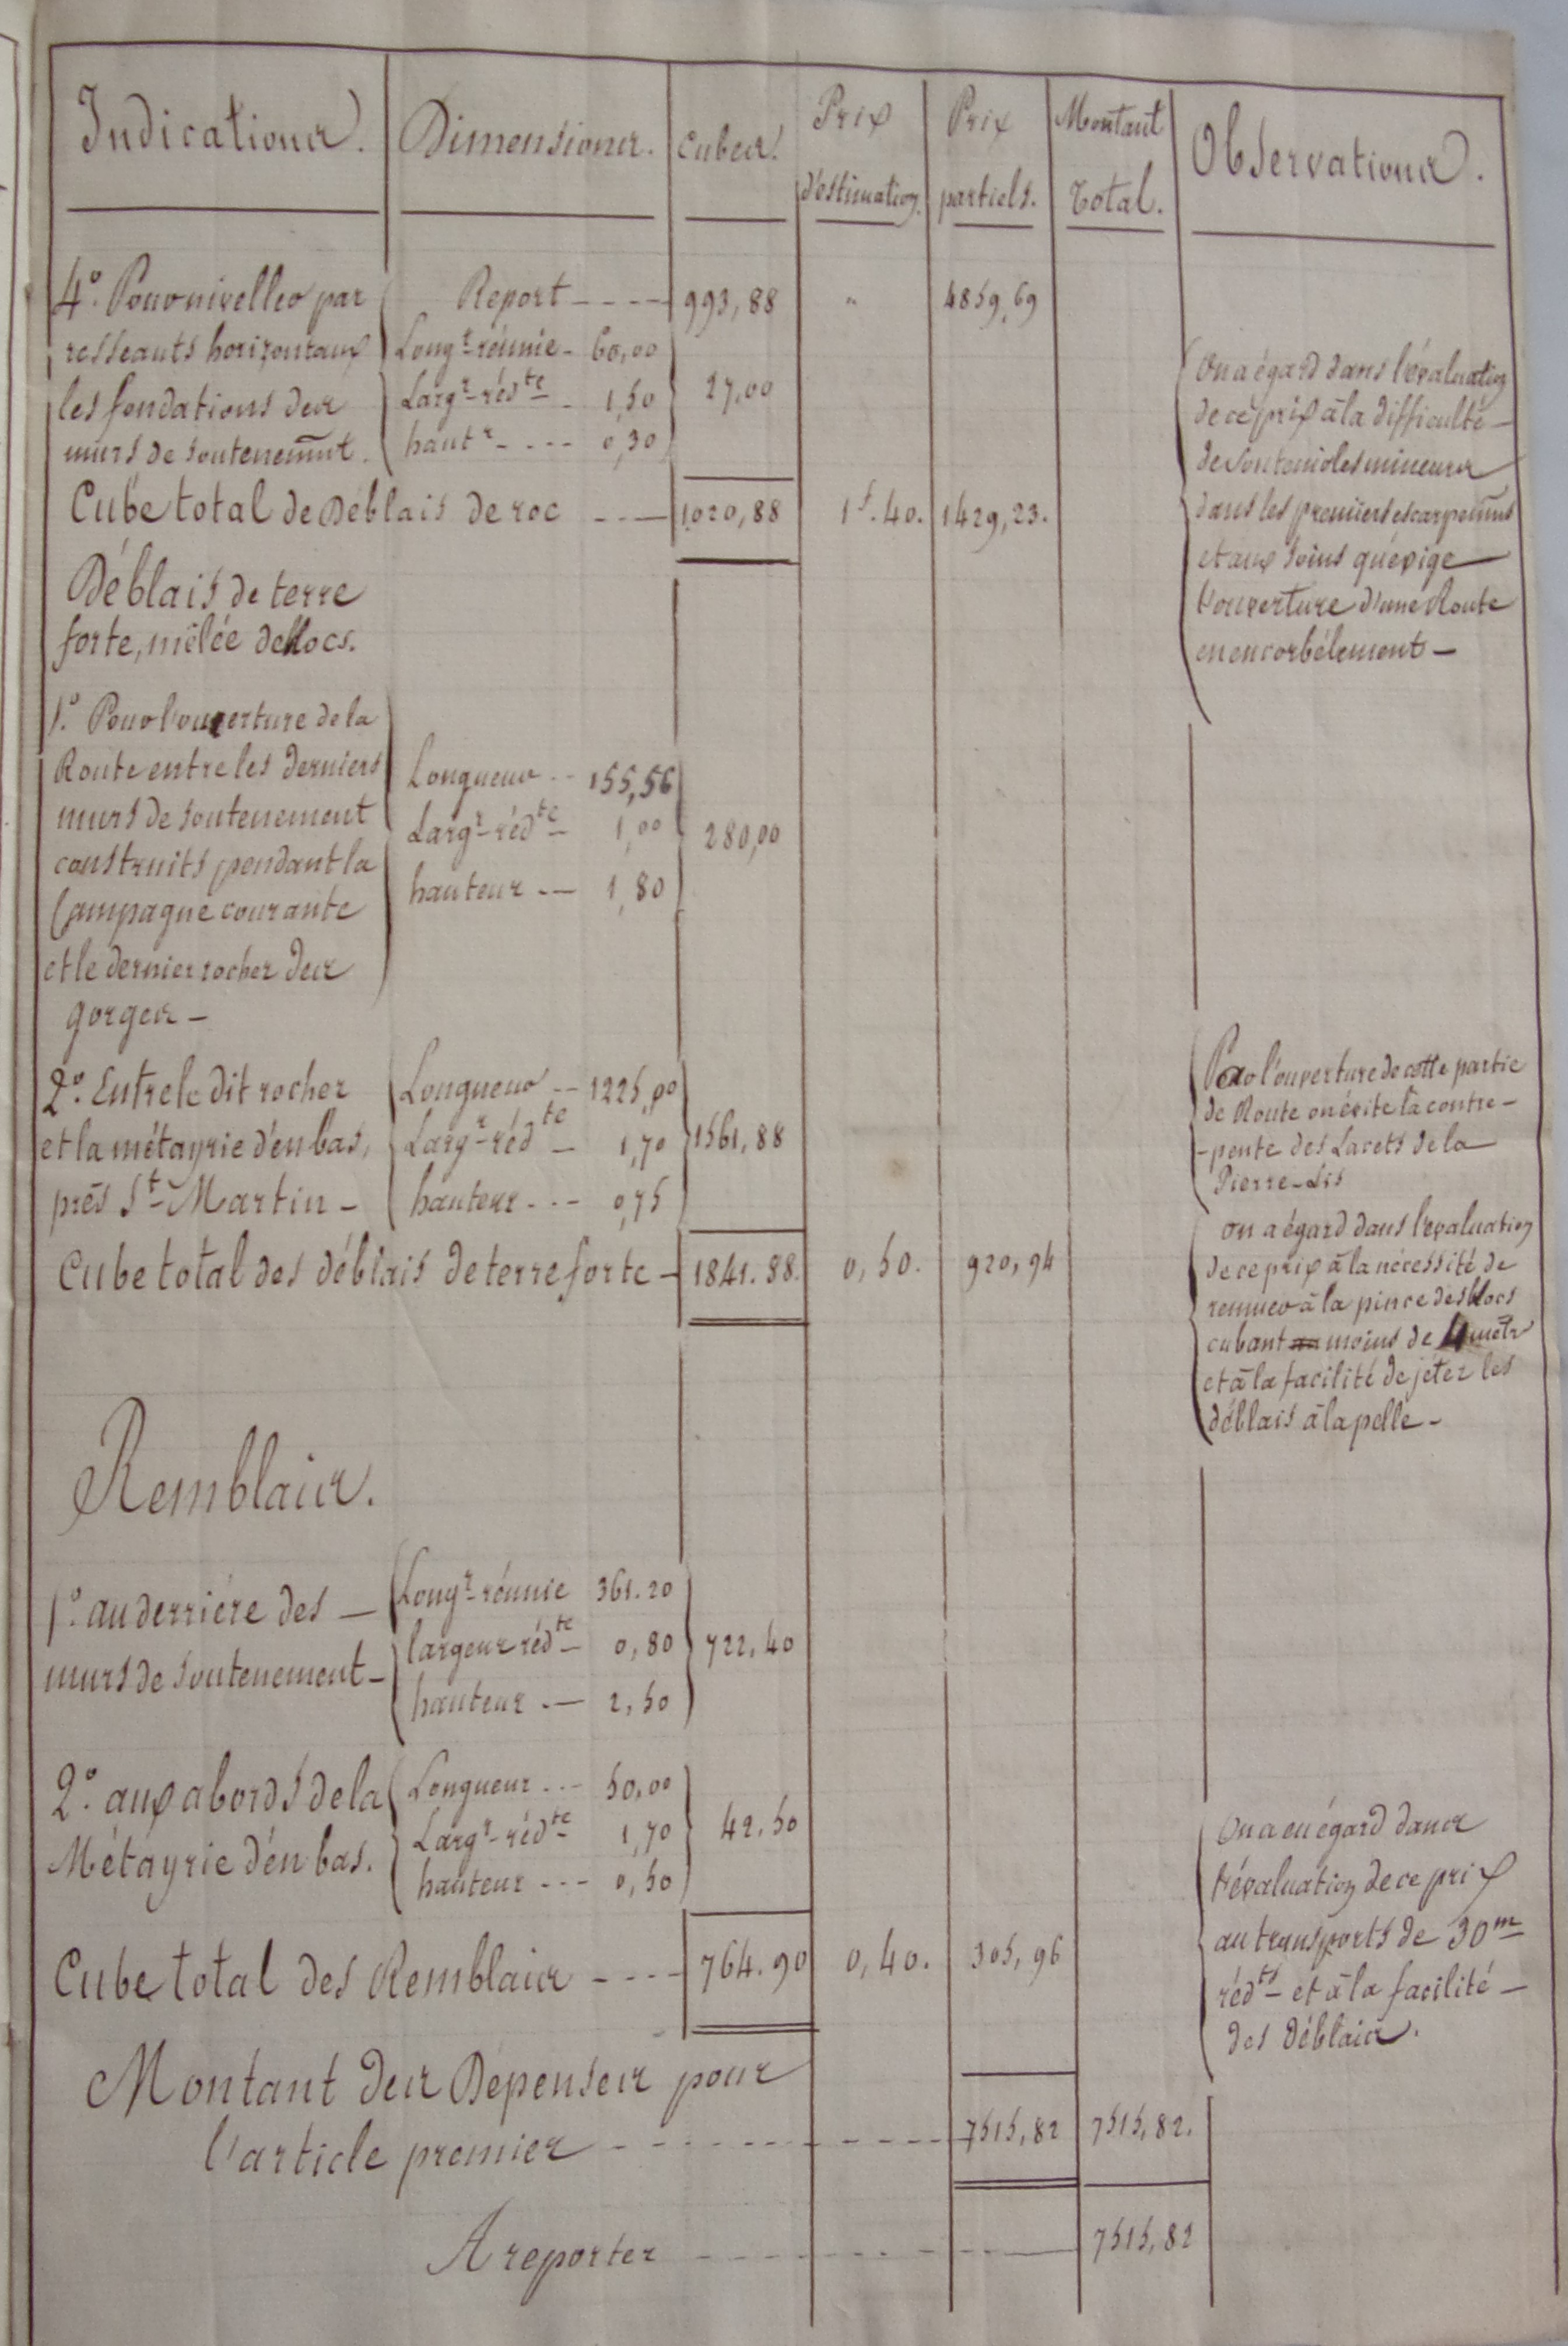 Indications. Dimensions. Cubes. Prix d'estimation. Prix partiels. Montant Total. Observations.
4° Pour niveller par
ressauts horizontaux
les fondations des
murs de soutenemt.
Report ---- 993,88 " 4859,69
Longr réunie - 60,00
Largr rédte - 1,50
hautr ---- 0,30
27,00
Cube total de Déblais de roc --- 1020,88 1f.40. 1429,23.
On a égard dans l'évaluation
de ce prix à la difficulté
de soutenir les mineurs
dans les premiers escarpemens
et aux soins qu'exige
l'ouverture d'une Route
en encorbélement —
Déblais de terre
forte, mêlée de blocs.
1° Pour l'ouverture de la
Route entre les derniers
murs de soutenement
construits pendant la
Campagne courante
et le dernier rocher des
gorges —
Longueur -- 155,56
Largr rédte - 1,00
hauteur -- 1,80
280,00
2° Entre le dit rocher
et la métayrie d'en bas,
près St Martin —
Longueur -- 1225,00
Largr rédte - 1,70
hauteur --- 0,75
1561,88
Par l'ouverture de cette partie
de Route on évite la contre-
-pente des Lacets de la
Pierre-Lis
Cube total des déblais de terre forte - 1841.88. 0,50. 920,94
on a égard dans l'evaluation
de ce prix à la nécessité de
remuer à la pince des blocs
cubant moins de 4 mètr
et à la facilité de jéter les
déblais à la pelle —
Remblais.
1° au derrière des —
murs de soutenement —
Longr réunie 361.20
largeur rédte 0,80
hauteur -- 2,50
722,40
2° aux abords de la
Métayrie d'en bas.
Longueur --- 50,00
Largr rédte - 1,70
hauteur --- 0,50
42.50
Cube total des Remblais ---- 764.90 0,40. 305,96
On a eu égard dans
l'évaluation de ce prix
au transports de 30m
rédts et à la facilité —
des déblais.
Montant des Dépenses pour
l'article premier ---------- 7515,82 7515,82.
A reporter ---------- 7515,82